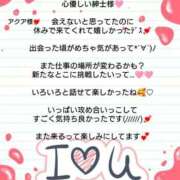 心優しい紳士様🩷
アクア様❤ 会えないと思ってたのに
休みで来てくれて嬉しかったデス
出会った頃がめちゃ気があって*ˊᵕˋ)ﾉ
また仕事の場所が変わるかも？
新たなとこに挑戦したいって...❤
いろいろと話せて楽しかったね🥰♡
いっぱい攻め合いっこして
すごく気持ち良かったです(//////)
また来るって楽しみにしてます❤
I♡U